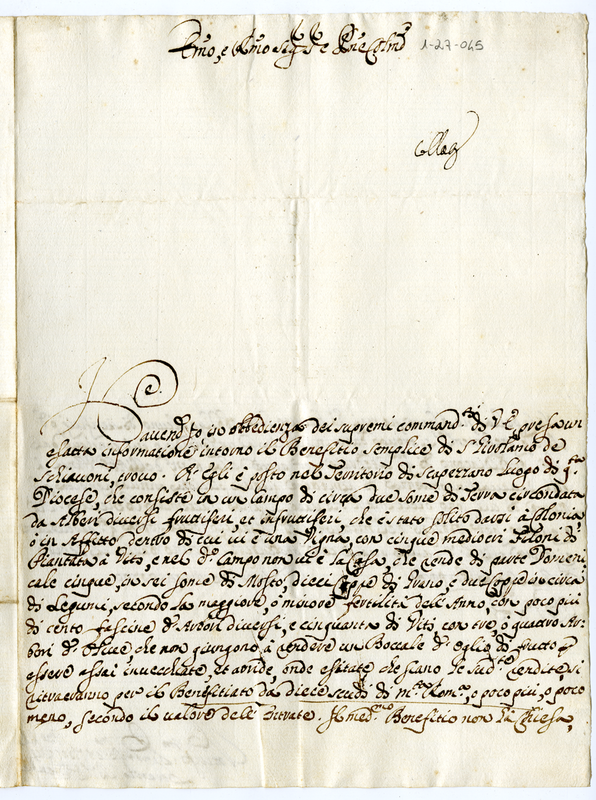 Emo, e Rmo Sig.re e Pne Colmo 1-27-045
Havend. Io in obbedienza dei supremi command.ti di V. E. presa un
esatta informatione intorno il Benefitio semplice di S. Girolamo de
Schiavoni, trovo. Ch' Egli è posto nel Territorio di Scapezzano luogo di q.ta
Diocese, che consiste in un Campo di circa due Some di Terra circondata
da Alberi diversi fruttiferi, et infruttiferi, che è stato solito darsi à Colonia,
ò in Affitto dentro di cui vi è una Vigna, con cinque mediocri Filoni di
Piantata à Viti, e nel d.o Campo non vi è la Casa, che rende di parte Domeni-
cale cinque, in sei some di Mosto, dieci di Grano, e due Coppe in circa
di Legumi, secondo la maggiore, ò minore fertilità dell'Anno, con poco più
di cento fascine d'Arbori diversi, e cinquanta di Viti con tre, ò quattro Ar-
bori d'Olive, che non giungono à rendere un Boccale d'oglio di frutto p.
essere assai invecchiate, et aride, onde esitate che siano le sud.te rendite, si
ritraeranno per il Benefitiato da diece scudi di m.ta Rom.a, e poco più, ò poco
meno, secondo il valore dell'Entrate. Il med.mo Benefitio non hà Chiesa,